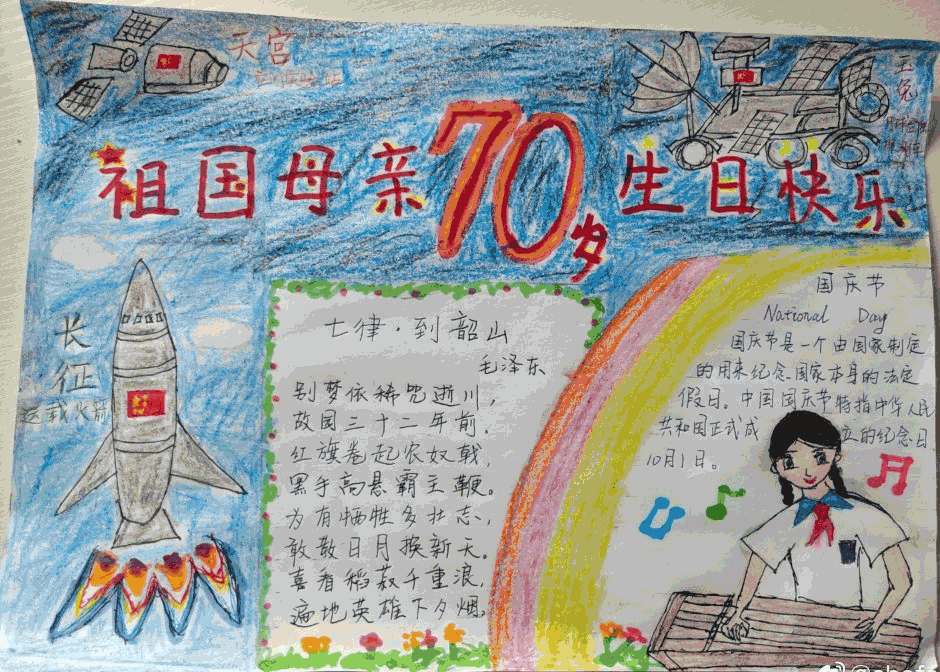 天宫
玉兔
祖国母亲70岁生日快乐
长征
运载火箭
七律·到韶山
毛泽东
别梦依稀咒逝川,
故园三十二年前.
红旗卷起农奴戟,
黑手高悬霸主鞭。
为有牺牲多壮志,
敢教日月换新天。
喜看稻菽千重浪,
遍地英雄下夕烟。
国庆节
National Day
国庆节是一个由国家制定
的用来纪念国家本身的法定
假日。中国国庆节特指中华人民
共和国正式成立的纪念日
10月1日。